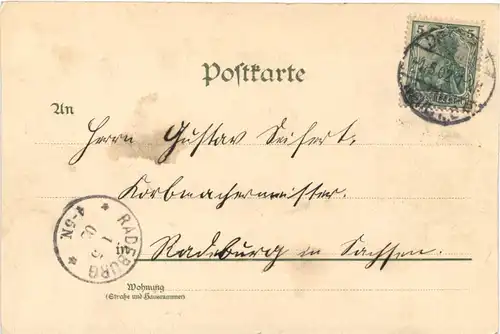 Postkarte
An
Herrn Gustav Seifert,
Korbmachermeister.
in Radeburg in Sachsen.
Wohnung
(Straße und Hausnummer)
5
RADEBURG
4-5N